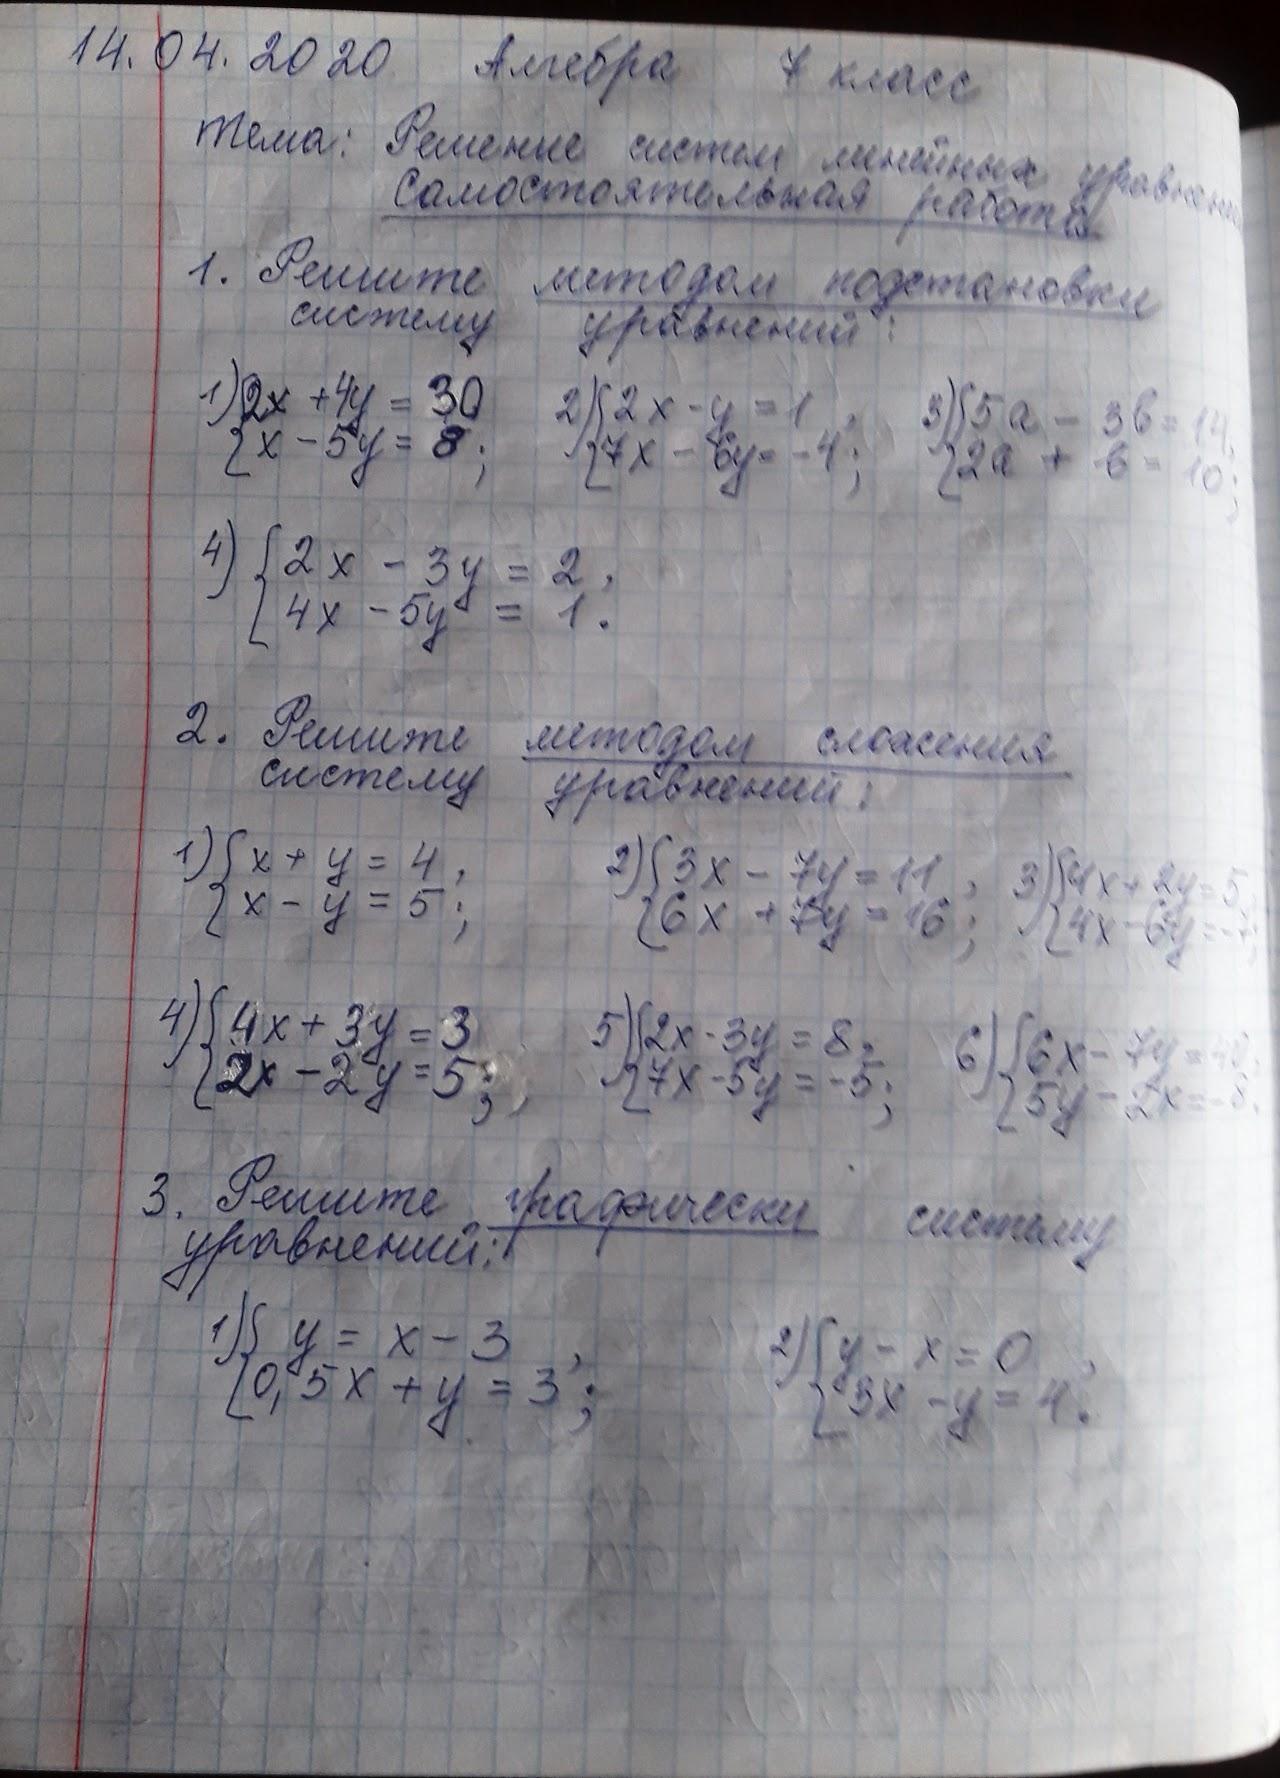 14.04.2020 Алгебра 7 класс
Тема: Решение систем линейных уравнений
Самостоятельная работа
1. Решите методом подстановки
систему уравнений:
1) 2x + 4y = 30 2) { 2x - y = 1, 3) { 5a - 3b = 14,
{ x - 5y = 8; { 7x - 6y = -4; { 2a + b = 10;
4) { 2x - 3y = 2,
{ 4x - 5y = 1.
2. Решите методом сложения
систему уравнений:
1) { x + y = 4, 2) { 3x - 7y = 11, 3) { 4x + 2y = 5,
{ x - y = 5; { 6x + 7y = 16; { 4x - 6y = -7;
4) { 4x + 3y = 3 5) { 2x - 3y = 8, 6) { 6x - 7y = 40,
{ 2x - 2y = 5; { 7x - 5y = -5; { 5y - 2x = -8.
3. Решите графически систему
уравнений:
1) { y = x - 3, 2) { y - x = 0,
{ 0,5x + y = 3; { 3x - y = 4.